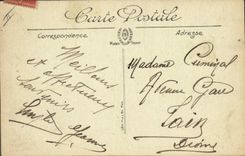 Carte Postale
Correspondance
Adresse
Meilleurs
et affectueux
souvenirs
Madame
Avenue Gare
Tain
Drôme